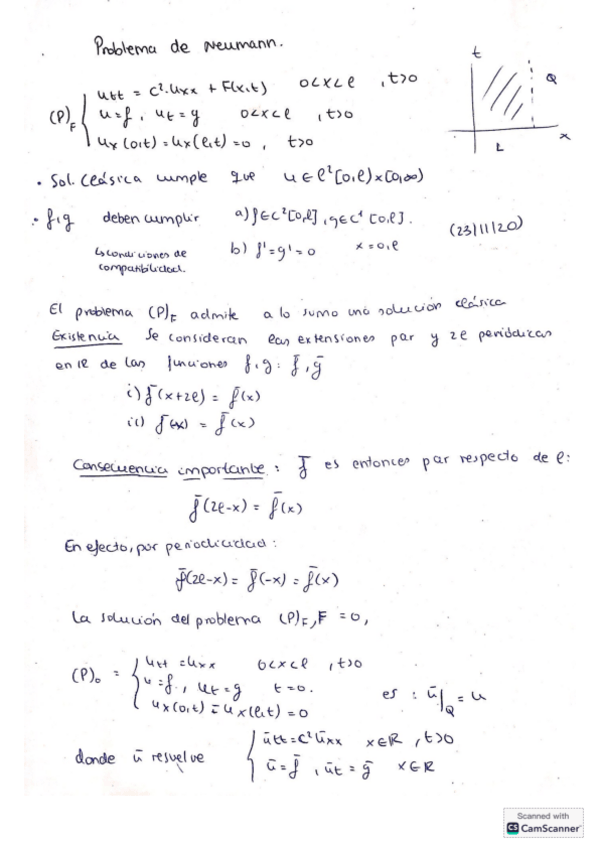 Problema de Neumann.
(P)_F { u_tt = c²·u_xx + F(x,t) 0<x<l , t>0
u=f , u_t=g 0<x<l , t>0
u_x(0,t)=u_x(l,t)=0, t>0
t
Q
L
x
• Sol. clásica cumple que u∈ℓ²[0,l)×[0,∞)
• f,g deben cumplir a) f∈C²[0,l], g∈C¹[0,l].
(23/11/20)
↳condiciones de compatibilidad.
b) f'=g'=0 x=0,l
El problema (P)_F admite a lo sumo una solución clásica
Existencia Se consideran las extensiones par y 2l periódicas
en ℝ de las funciones f,g: f̄,ḡ
i) f̄(x+2l) = f̄(x)
ii) f̄(-x) = f̄(x)
Consecuencia importante: f̄ es entonces par respecto de l:
f̄(2l-x) = f̄(x)
En efecto, por periodicidad:
f̄(2l-x) = f̄(-x) = f̄(x)
La solución del problema (P)_F, F=0,
(P)_0 = { u_tt = u_xx 0<x<l , t>0
u=f, u_t=g t=0.
u_x(0,t)=u_x(l,t)=0
es : ū|_Q = u
donde ū resuelve { ū_tt=c²ū_xx x∈ℝ, t>0
ū=f̄ , ū_t=ḡ x∈ℝ
Scanned with
CS CamScanner